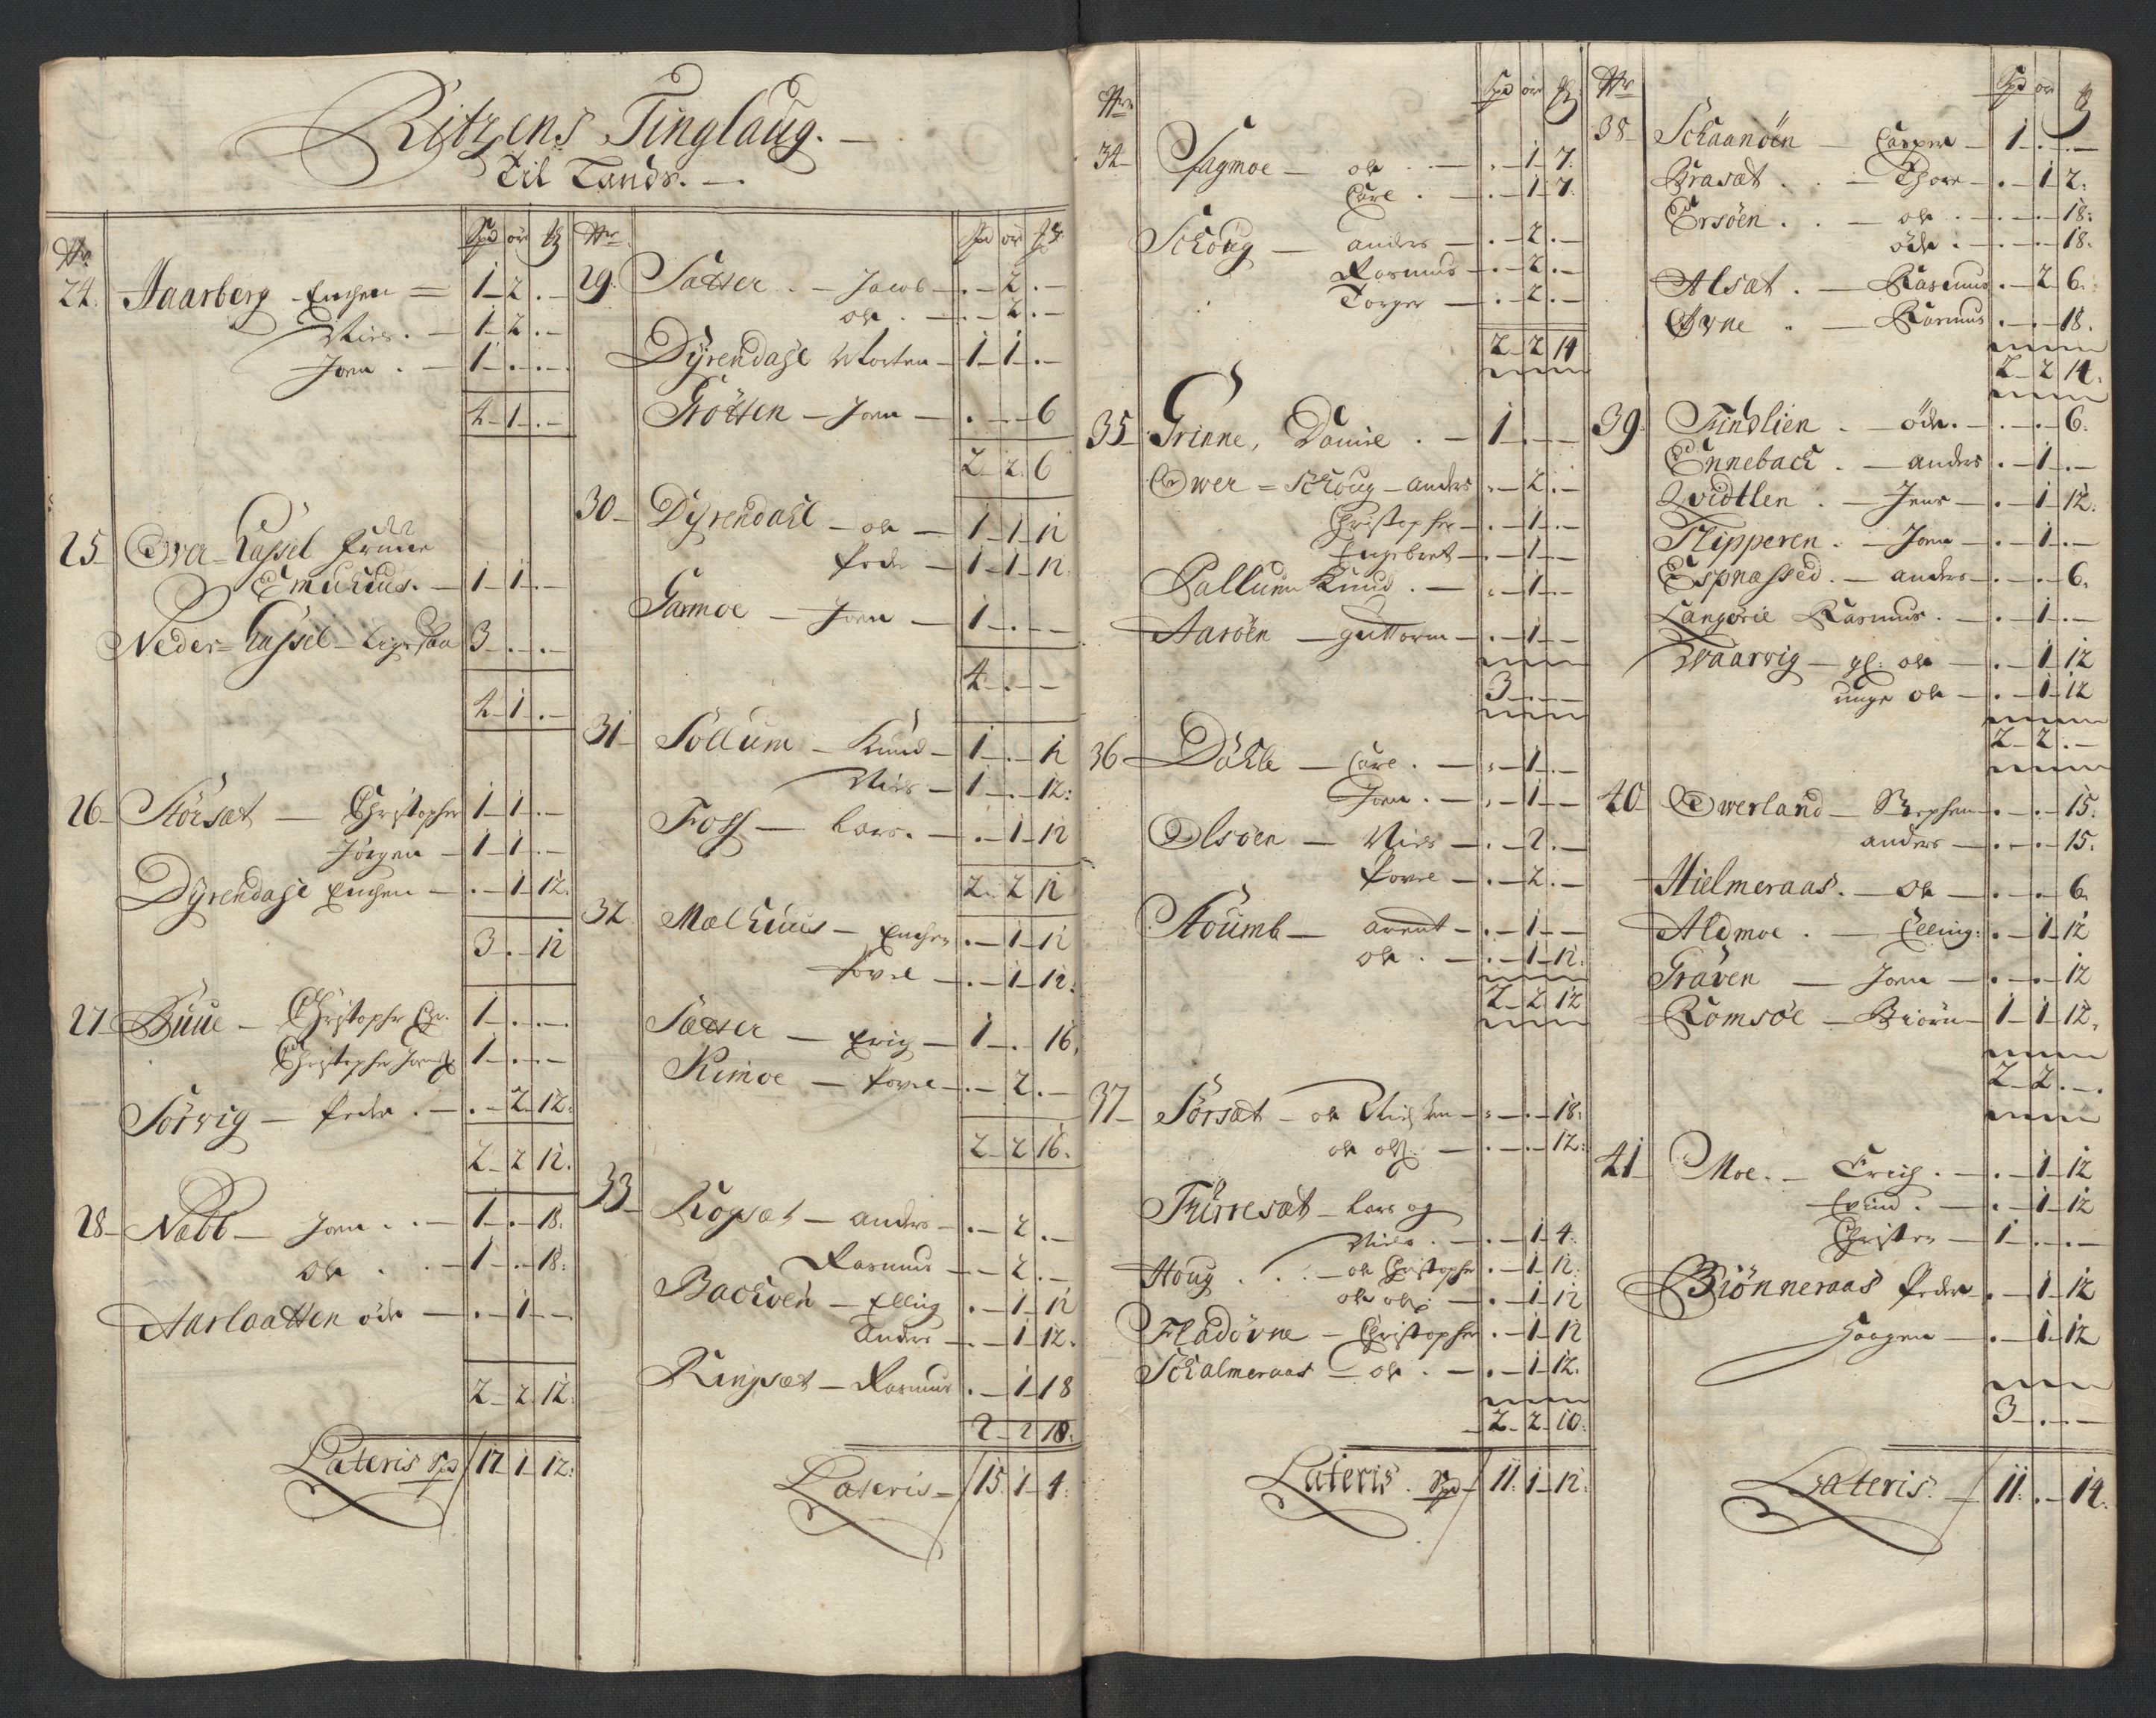 Ritzens Tinglaug. —
Til Lands. —
No Spd ort
24. Aaarberg Enchen = 1 - 2 . -
Niels. - 1 - 2 . -
Joen . - 1 - . . -
4 - 1 . -
25 Over-Hassel
Emuhuus. - 1 - 1 . -
Neder=Hassel 3 - . . -
4 - 1 . -
26 Störsæt — Christopher 1 - 1 . -
Jörgen - 1 - 1 . -
Dÿrendahl Enchen - . - 1 - 12.
3 - . 12
27 Buue - Christopher Chr. 1 - . . -
Christopher 1 - . . -
Sörvig - Peder . - . - 2 - 12.
2 - 2 12.
28 Nebb - Joen . . - 1 - . 18.
ole . . - 1 - . 18.
Aarlaatten öde - . - 1 - -
2 - 2 12.
Lateris Spd 17 - 1 - 12.
No Spd ort
29. Sætter . - Jacob - . - 2 . -
ole . - . - 2 . -
Dÿrendahl Morten - 1 - 1 - . -
Grötten - Joen - . - - 6
2 - 2. 6
30 Dÿrendahl - ole - 1 - 1 - 12
Peder - 1 - 1 - 12.
Garmoe - Joen - 1 - . - -
4 - . - -
31 Sollum - Knud - 1 - . - 12
Niels - 1 - . - 12:
Foss - Lars. - . - 1 - 12
2 - 2 12
32 Mælhuus - Enchen . - 1 - 12
Povel - . - 1 - 12.
Sætter - Erich - 1 - . 16.
Rimoe - Povel - . - 2 . -
2 - 2 16.
33 Kopsæt - anders - . - 2 . -
Rasmus - - 2 . -
Backöen - Elling . - 1 - 12
Anders - . - 1 - 12.
Ringsæt - Rasmus . - 1 - 18
2 - 2 18.
Lateris - 15. 1 - 4.
No Spd ort
34 Fagmoe - ole . . - . - 1 - 7.
Carl . - . - 1 - 7.
Schoug - anders - . - 2 . -
Rasmus - . - 2 . -
Torger - . - 2 . -
2 - 2 14
35 Grinne, Daniel . - 1 . - -
Over = Schoug - anders . - 2 . -
Christopher - . - 1 . -
Engebret - . - 1 - -
Pallum Knud . - . - 1 . -
Aaröen - guttorm - . - 1 - -
3 - . - -
36 Dahle - Carl . - . - 1 . -
Joen . - . - 1 - -
Olsöen - Niels - . - 2 . -
Povel - . - 2 . -
Stoumb - arent - . - 1 - -
ole . - . - 1 - 12.
2 - 2 12
37 Sörsæt - ole - . - . - 18.
ole ols. - . - . - 12.
Furresæt - Lars og
Niels . - . - 1 4.
Houg . . . - ole Christopher . - 1 - 12.
ole ols - . - 1 - 12
Fladövne - Christopher . - 1 - 12
Schalmeraas - ole . - . - 1 - 12.
2 - 2 - 10.
Lateris. Spd 11. 1 - 12.
No Spd ort
38 Schaanöen - Casper - 1 - . . -
Brasæt . . - Thore - . - 1 2.
Ersöen . . - ole . - . - . - 18.
öde . - . - . - 18.
Alsæt . - Rasmus . - 2 6.
Övne . - Rasmus . - . - 18.
2 - 2 14.
39. Findlien . - öde. - . - . - 6.
Enneback . - anders . - 1 . -
Qvidtlen . - Jens - . - 1 12.
Flipperen . - Joen - . - 1 . -
Espnæssed . - anders - . - . - 6.
Langörie Rasmus . - . - 1 . -
Waarvig - gl: ole - . - 1 12
unge ole - . - 1 - 12
2 - 2 . -
40 Owerland - Stephen - . - . - 15.
anders - . - . - 15.
Hielmeraas. - Ole - . - . - 6.
Aldmoe . - Elling: . - 1 - 12
Graven - Joen - . - . - 12
Romsöe - Biörn - 1 - 1 - 12.
2 - 2 . - .
41 Moe. - Erich . - . - 1 - 12
Evind . - . - 1 - 12
Christen - 1 - . . -
Biönneraas Peder . - 1 - 12
Haagen - . - 1 - 12
3 - . - -
Lateris. - 11. . - 14.